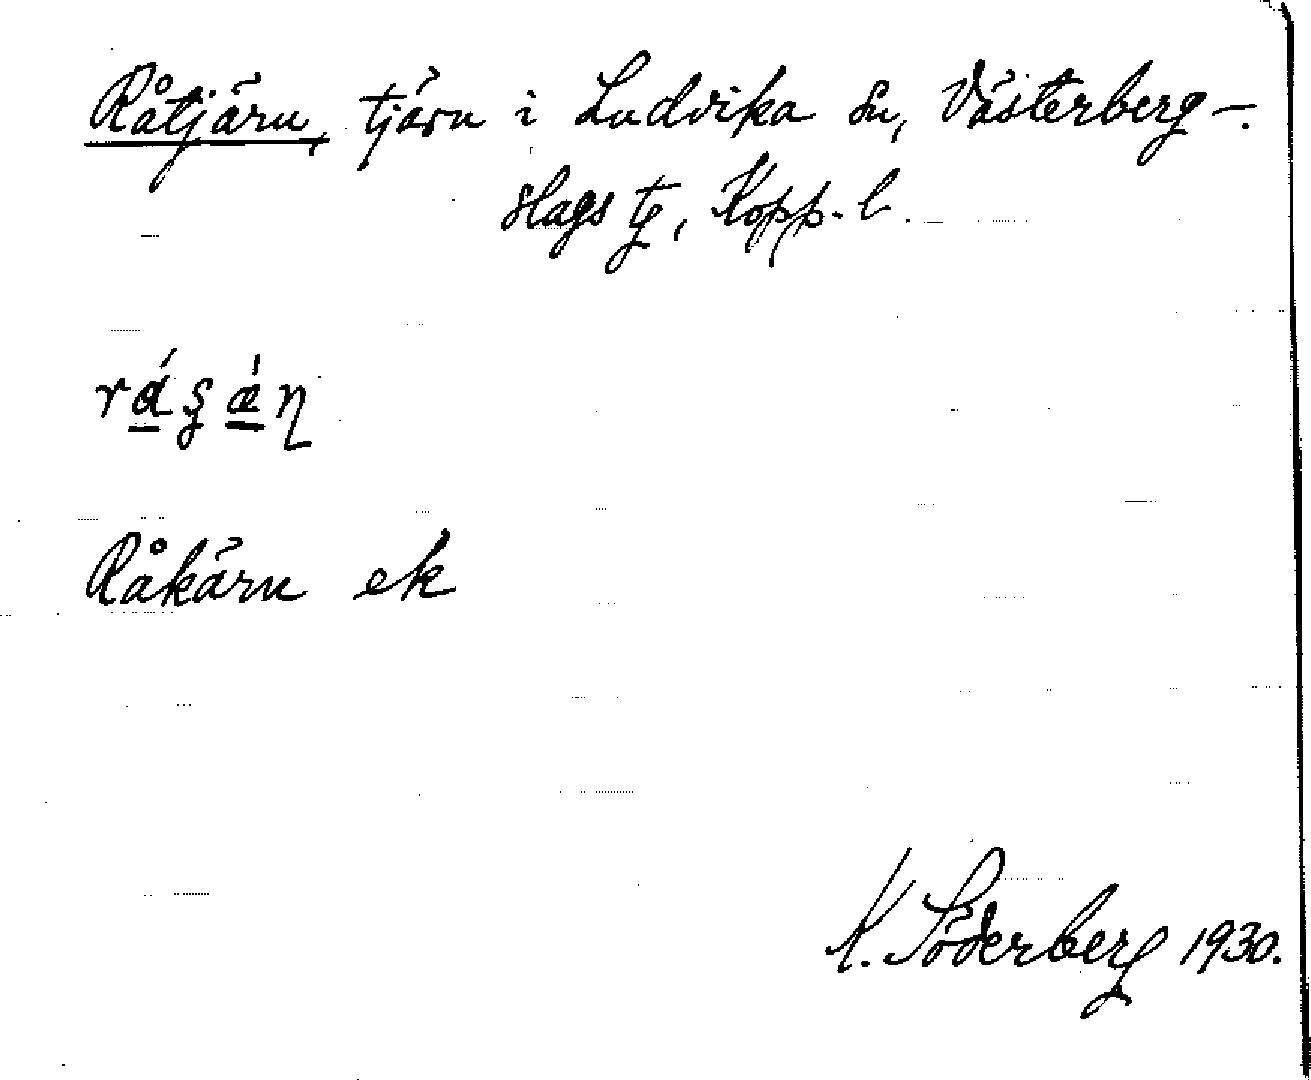 Råtjärn, tjärn i Ludvika sn, Västerberg-
slags tg, Kopp. l.
rá̱ʂǽ̱ɳ
Råkärn ek
K. Söderberg 1930.